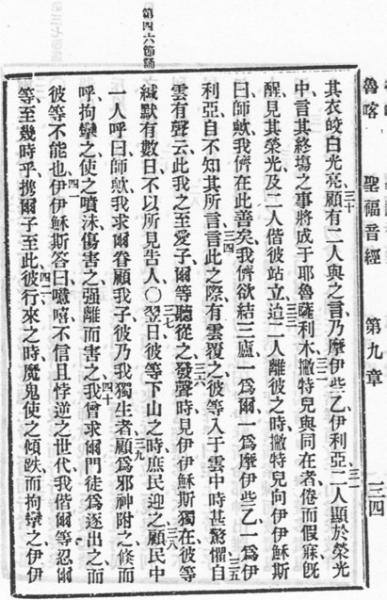 魯喀 聖福音經 第九章 三四
第四六節誦
其衣皎白光亮顧有二人與之言乃摩伊些乙伊利亞二人顯於榮光
中言其終塲之事將成于耶魯薩利木撇特兒與同在者倦而假寐旣
醒見其榮光及二人偕彼站立迨二人離彼之時撇特兒向伊伊穌斯
曰師歟我儕在此善矣我儕欲結三廬一爲爾一爲摩伊些乙一爲伊
利亞自不知其所言言此之際有雲覆之彼等入于雲中時甚驚懼自
雲有聲云此我之至愛子爾等聽從之發聲時見伊伊穌斯獨在彼等
緘默有數日不以所見告人〇翌日彼等下山之時庶民迎之顧民中
一人呼曰師歟我求爾眷顧我子彼乃我獨生者顧爲邪神附之倏而
呼拘攣之使之噴沫傷害之强離而害之我曾求爾門徒爲逐出之而
彼等不能也伊伊穌斯答曰噫嘻不信且悖逆之世代我偕爾等忍爾
等至幾時乎攜爾子至此彼行來之時魔鬼使之傾跌而拘攣之伊伊